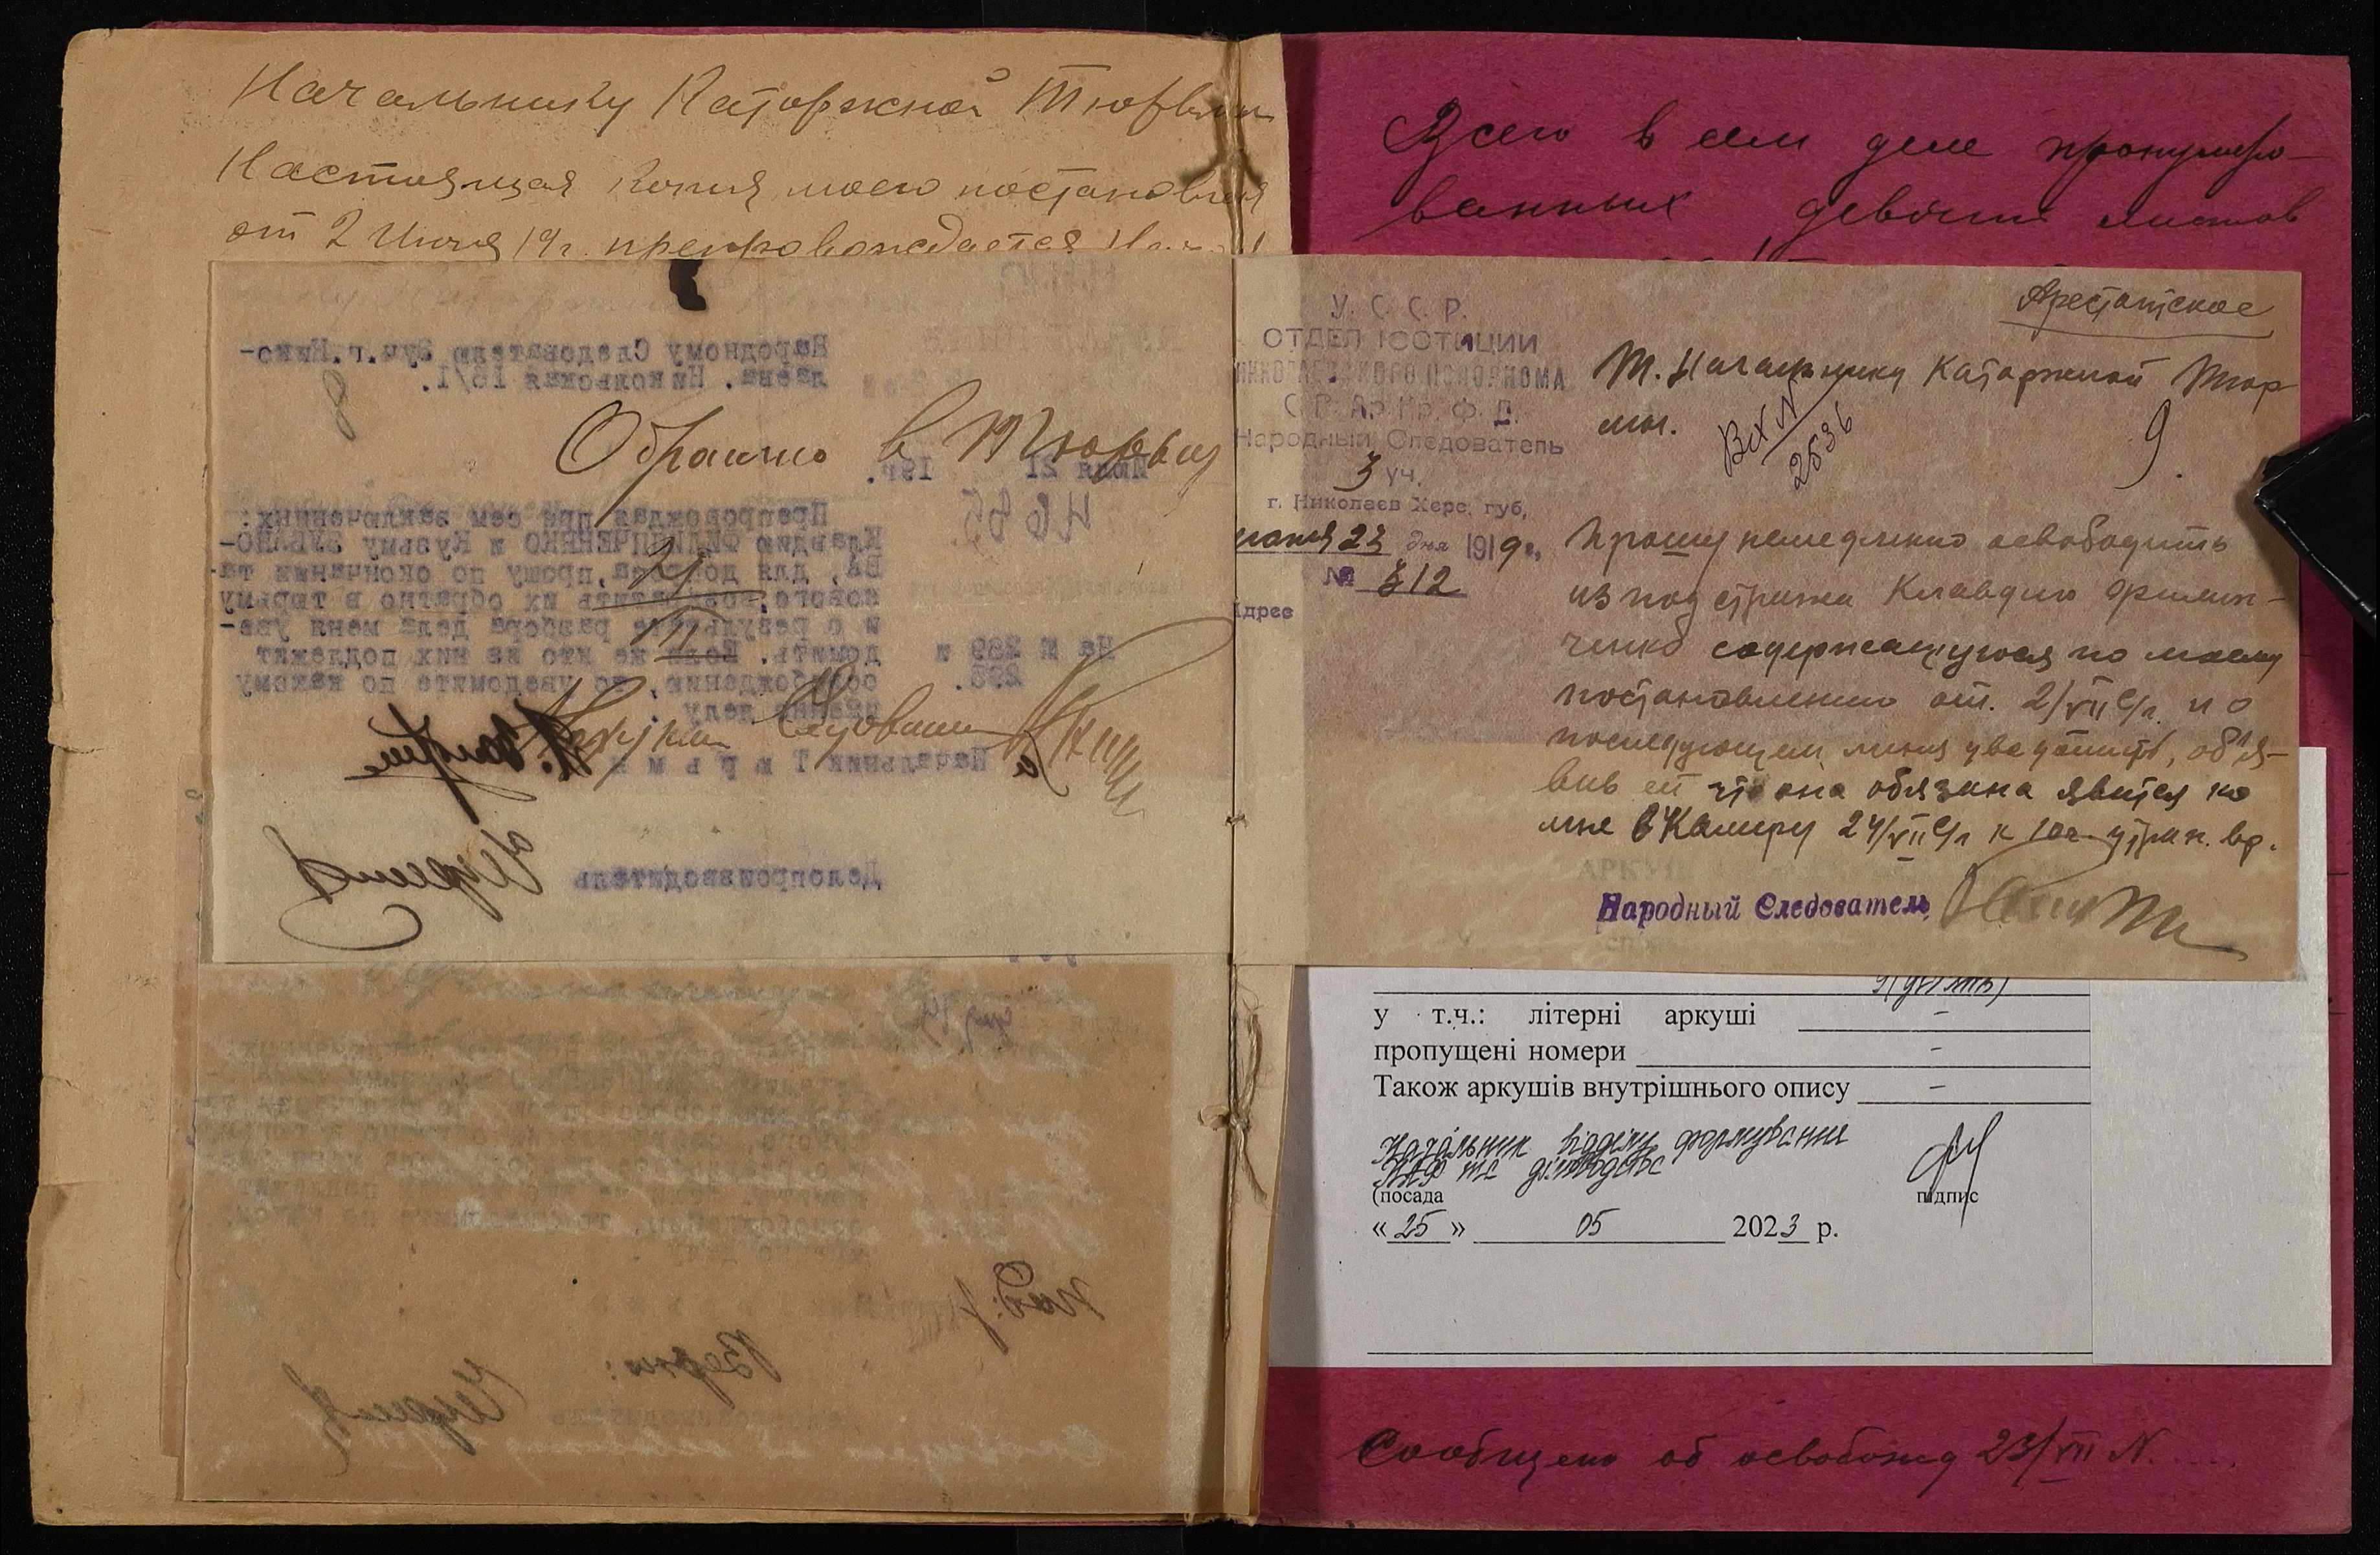 Начальнику Каторжной Тюрьмы
Настоящая копия моего постановления
от 2 Июля 19г. препровождается
Народному Следователю 3уч.г.Нико-
лаева. Никольская 16/1.
8
Обратно в Тюрьму
Июля 21 19г.
4655
Препровождая при сем заключенных:
Клавдию ФИЛИПЧЕНКО и Кузьму ЗУБАНО-
ВА, для допроса, прошу по окончании та-
кового, возвратить их обратно в тюрьму
и о результате разбора дела меня уве-
домить. Если же кто из них подлежит
освобождению, то уведомите по какому
именно делу.
На № 289 и
293.
Начальник Тюрьмы
Делопроизводитель
Верно:
Всего в сем деле пронумеро-
ванных девять листов
У. С. С. Р.
ОТДЕЛ ЮСТИЦИИ
НИКОЛАЕВСКОГО ИСПОЛКОМА
С. Р. Ар. Кр. Ф. Д.
Народный Следователь
3 уч.
г. Николаев Херс. губ.
июля 23 дня 1919г.
№ 312
Адрес
Арестантское
Т. Начальнику Каторжной Тюр
мы.
Вх N 2536
9.
Прошу немедленно освободить
из под стражи Клавдию Филип-
ченко содержащуюся по моему
постановлению от. 2/VII с/г. и о
последующем меня уведомить, об'я-
вив ей что она обязана явится ко
мне в Камеру 24/VII с/г к 10 ч утра п. вр.
Народный Следователь
9 (дев'ять)
у т.ч.: літерні аркуші –
пропущені номери –
Також аркушів внутрішнього опису –
Начальник відділу формування
НАФ та діловодства
(посада підпис
« 25 » 05 2023 р.
Сообщено об освобожд 23/VII N.